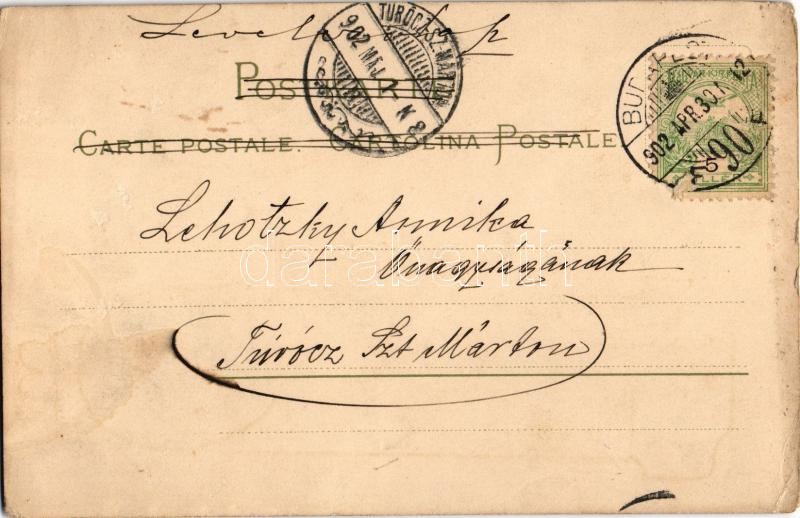 Levelező lap
POSTKARTE
CARTE POSTALE. CARTOLINA POSTALE
TURÓCZ-SZ-MÁRTON
902 MÁJ.
BUDAPEST
902 APR. 30.
90
5
Lehotzky Annika
Őnagyságának
Túrócz Szt Márton
darabanth